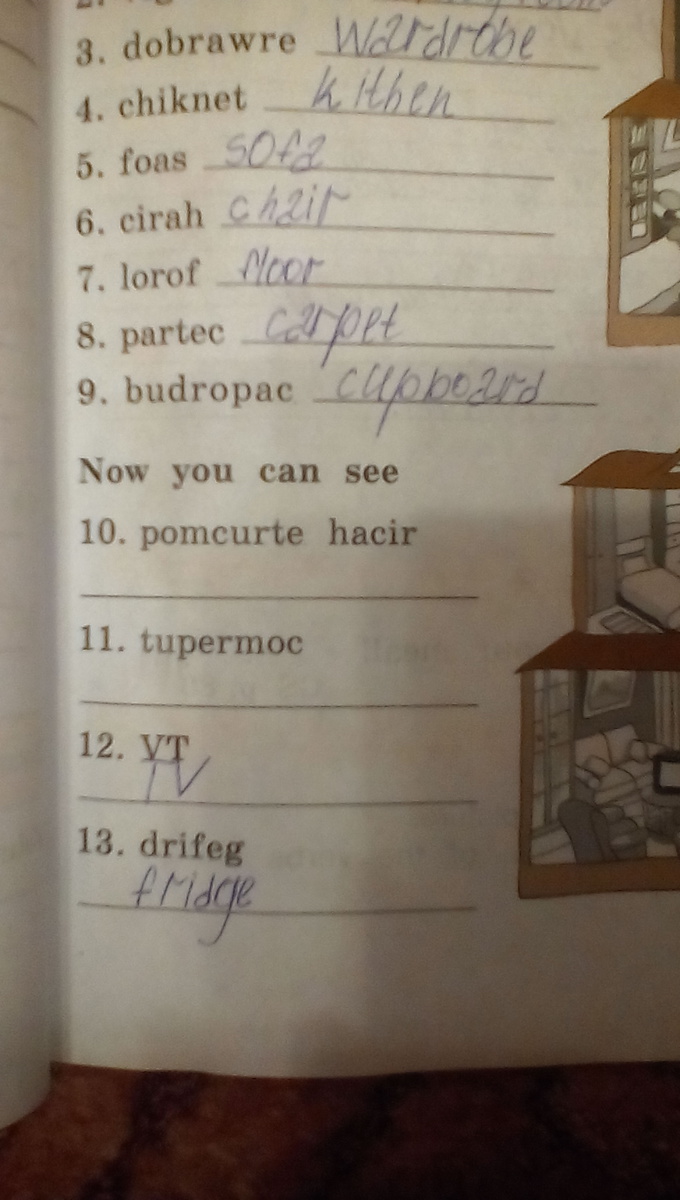 3. dobrawre wardrobe
4. chiknet kithen
5. foas sofa
6. cirah chair
7. lorof floor
8. partec carpet
9. budropac cupboard
Now you can see
10. pomcurte hacir
11. tupermoc
12. VT
TV
13. drifeg
fridge